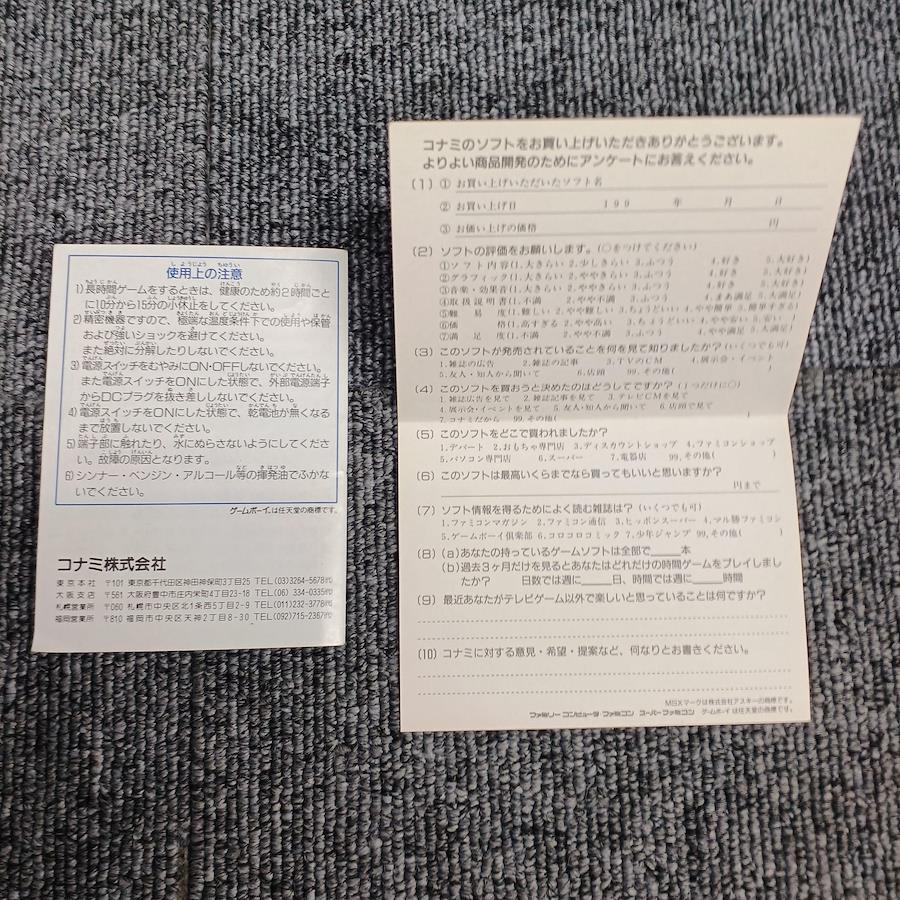 使用上の注意
1)長時間ゲームをするときは、健康のため約2時間ごと
に10分から15分の小休止をしてください。
2)精密機器ですので、極端な温度条件下での使用や保管
および強いショックを避けてください。
また絶対に分解したりしないでください。
3)電源スイッチをむやみにON・OFFしないでください。
また電源スイッチをONにした状態で、外部電源端子
からDCプラグを抜き差ししないでください。
4)電源スイッチをONにした状態で、乾電池が無くなる
まで放置しないでください。
5)端子部に触れたり、水にぬらさないようにしてくださ
い。故障の原因となります。
6)シンナー・ベンジン・アルコール等の揮発油でふかな
いでください。
ゲームボーイ は任天堂の商標です。
コナミ株式会社
東京本社 〒101 東京都千代田区神田神保町3丁目25 TEL(03)3264-5678㈹
大阪支店 〒561 大阪府豊中市庄内栄町4丁目23-18 TEL(06) 334-0335㈹
札幌営業所 〒060 札幌市中央区北1条西5丁目2-9 TEL(011)232-3778㈹
福岡営業所 〒810 福岡市中央区天神2丁目8-30 TEL(092)715-2367㈹
コナミのソフトをお買い上げいただきありがとうございます。
よりよい商品開発のためにアンケートにお答えください。
(1) ① お買い上げいただいたソフト名
② お買い上げ日 199 年 月 日
③ お買い上げの価格 円
(2) ソフトの評価をお願いします。(○をつけてください)
①ソフト内容(1.大きらい 2.少しきらい 3.ふつう 4.好き 5.大好き)
②グラフィック(1.大きらい 2.ややきらい 3.ふつう 4.好き 5.大好き)
③音楽・効果音(1.大きらい 2.ややきらい 3.ふつう 4.好き 5.大好き)
④取扱説明書(1.不満 2.やや不満 3.ふつう 4.まあ満足 5.大満足)
⑤難易度(1.難しい 2.やや難しい 3.ちょうどいい 4.やや簡単 5.簡単すぎる)
⑥価格(1.高すぎる 2.やや高い 3.ちょうどいい 4.やや安い 5.安い)
⑦満足度(1.不満 2.やや不満 3.ふつう 4.やや満足 5.大満足)
(3) このソフトが発売されていることを何を見て知りましたか?(いくつでも可)
1.雑誌の広告 2.雑誌の記事 3.TVのCM 4.展示会・イベント
5.友人・知人から聞いて 6.店頭 99.その他( )
(4) このソフトを買おうと決めたのはどうしてですか?(1つだけに○)
1.雑誌広告を見て 2.雑誌記事を見て 3.テレビCMを見て
4.展示会・イベントを見て 5.友人・知人から聞いて 6.店頭で見て
7.コナミだから 99.その他( )
(5) このソフトをどこで買われましたか?
1.デパート 2.おもちゃ専門店 3.ディスカウントショップ 4.ファミコンショップ
5.パソコン専門店 6.スーパー 7.電器店 99.その他( )
(6) このソフトは最高いくらまでなら買ってもいいと思いますか?
円まで
(7) ソフト情報を得るためによく読む雑誌は?(いくつでも可)
1.ファミコンマガジン 2.ファミコン通信 3.ヒッポンスーパー 4.マル勝ファミコン
5.ゲームボーイ倶楽部 6.コロコロコミック 7.少年ジャンプ 99.その他( )
(8) (a)あなたの持っているゲームソフトは全部で____本
(b)過去3ヶ月だけを見るとあなたはどれだけの時間ゲームをプレイしまし
たか? 日数では週に____日、時間では週に____時間
(9) 最近あなたがテレビゲーム以外で楽しいと思っていることは何ですか?
(10) コナミに対する意見・希望・提案など、何なりとお書きください。
MSXマークは株式会社アスキーの商標です。
ファミリー コンピュータ・ファミコン スーパーファミコン ゲームボーイ は任天堂の商標です。